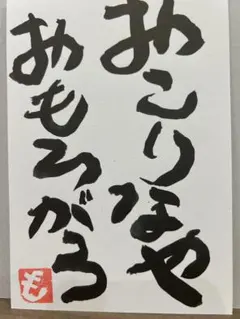 おこりなや
おもろがろ